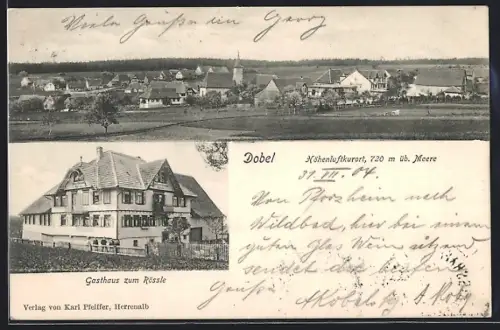 Viele Grüße din Georg
Dobel Höhenluftkurort, 720 m üb. Meere
31 VII. 04.
Von Pforzheim nach
Wildbad, hier bei einem
guten Glas Wein sitzend
sendet die besten
Grüße
Gasthaus zum Rössle
Verlag von Karl Pfeiffer, Herrenalb